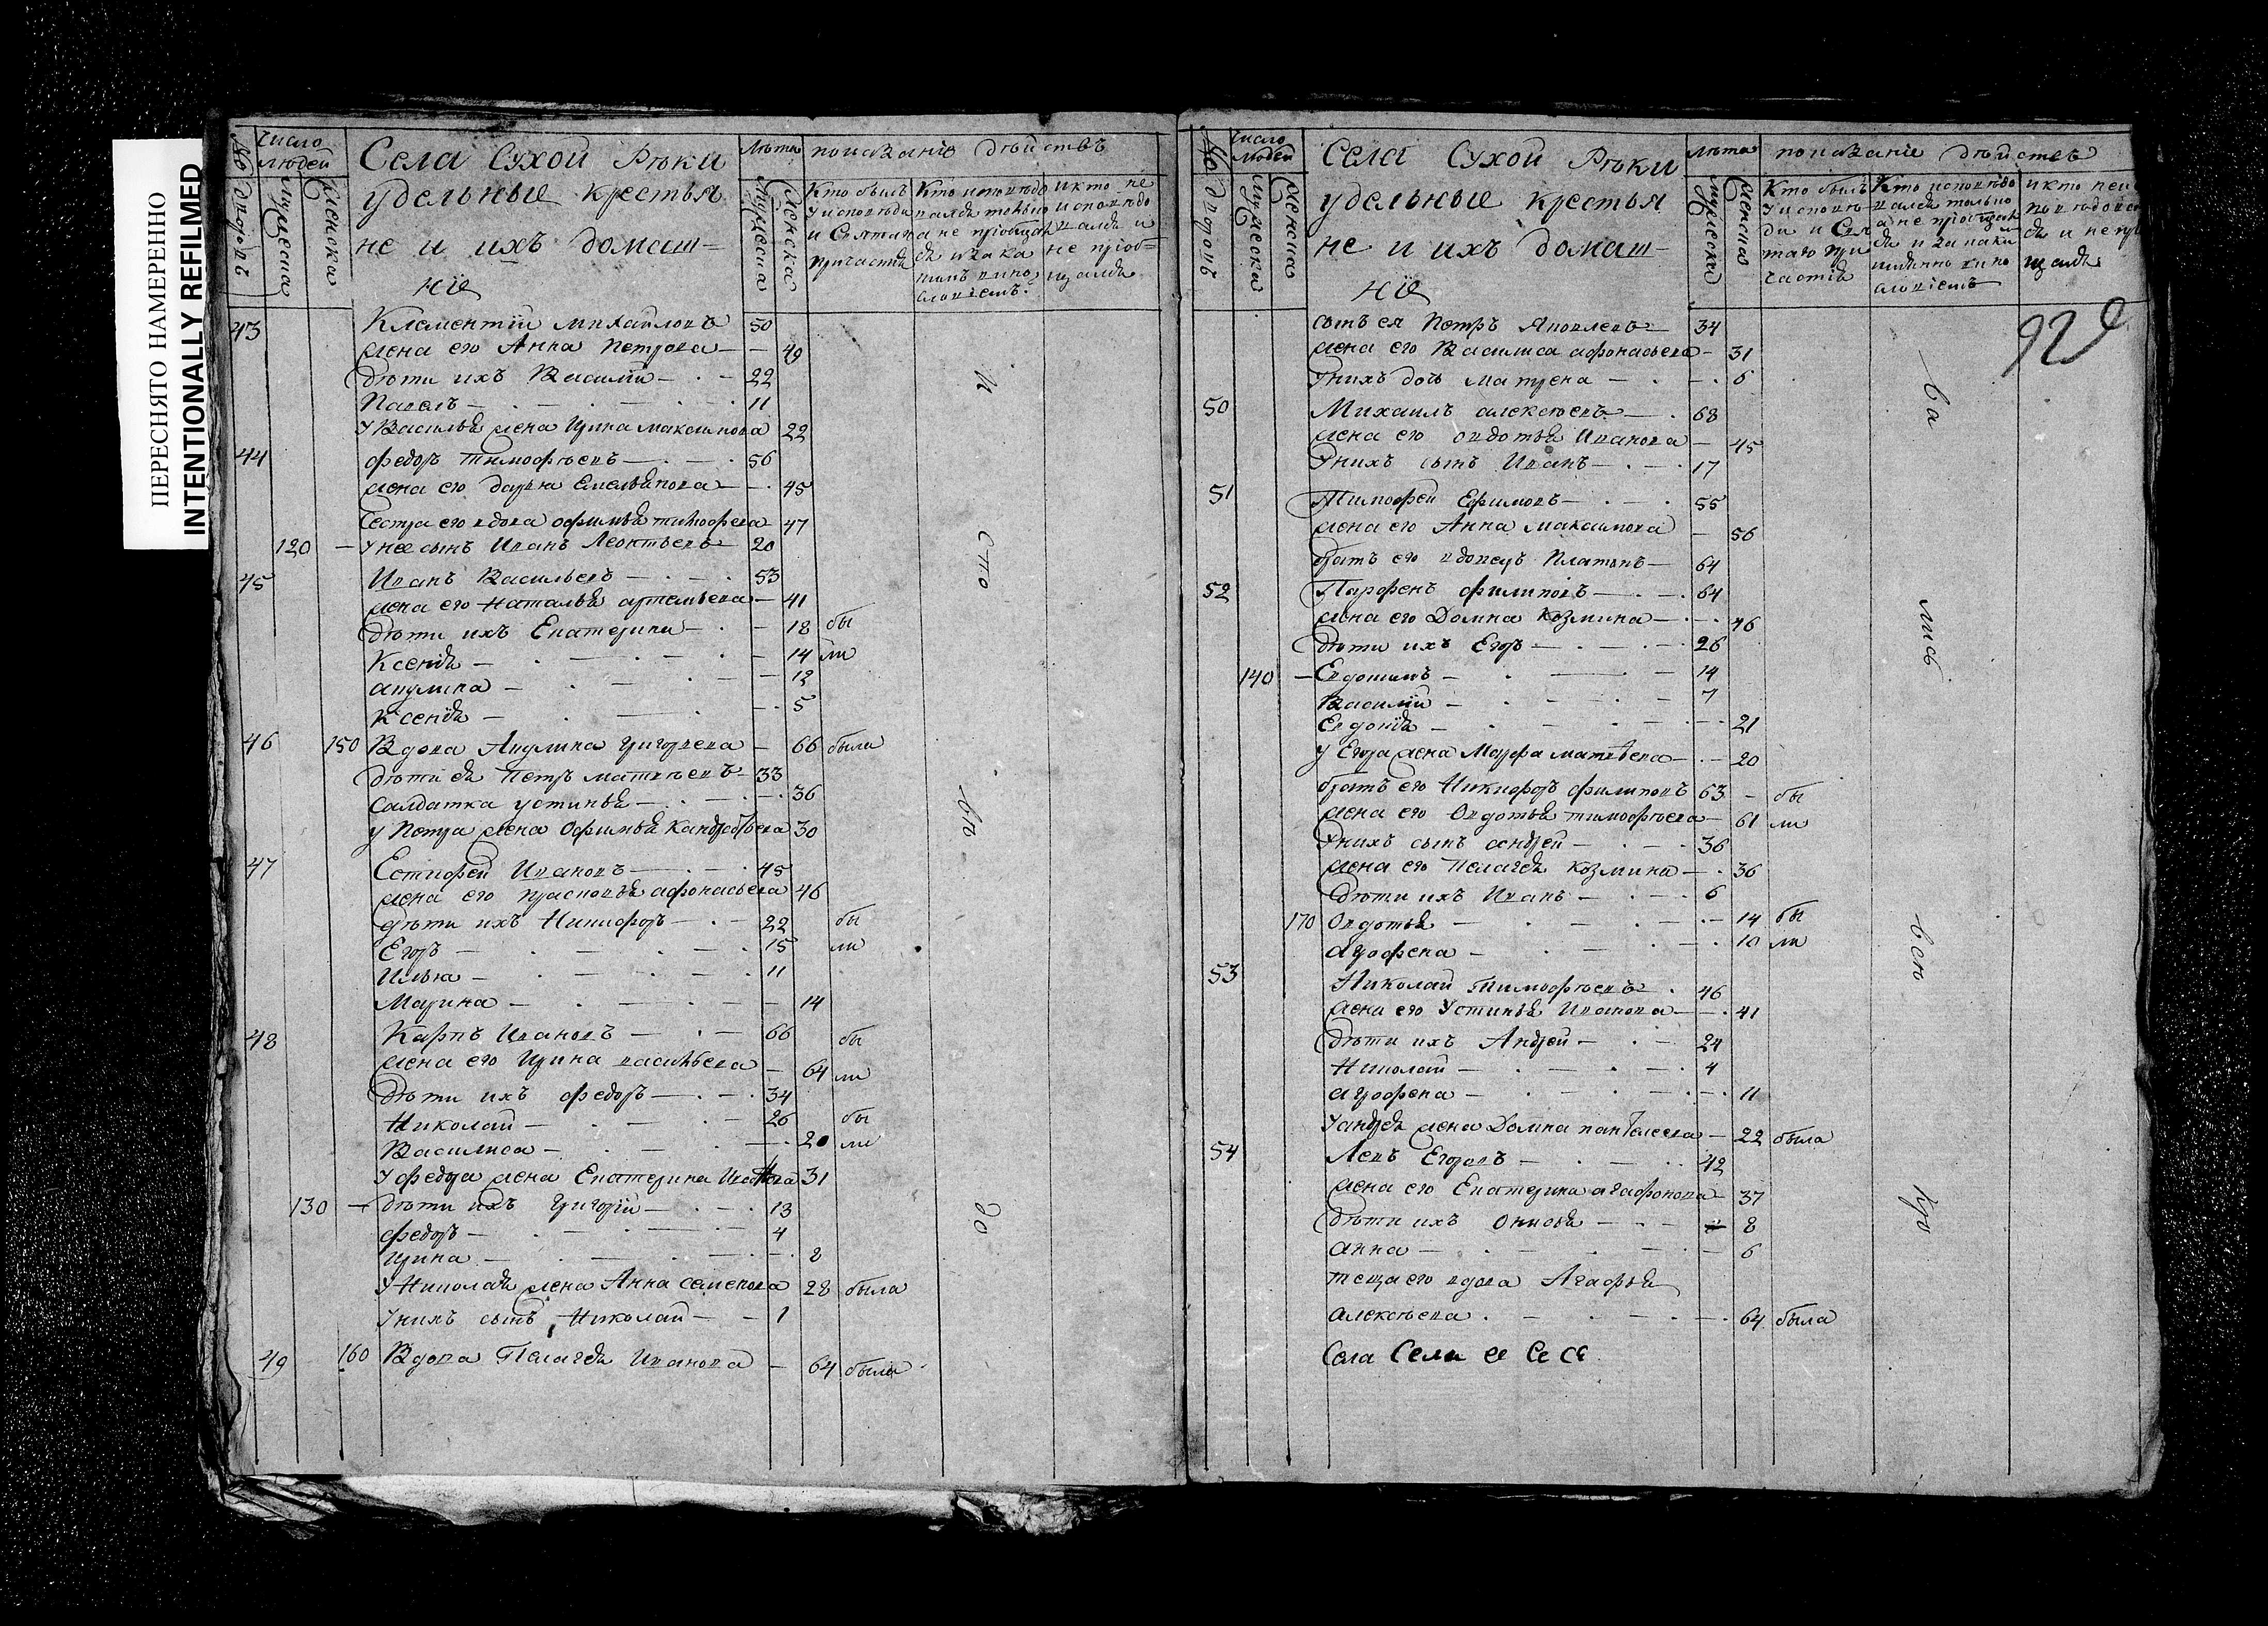 ПЕРЕСНЯТО НАМЕРЕННО
INTENTIONALLY REFILMED
число людей
Села Сухой Рѣки
удельные крестья
не и ихъ домаш-
нiе
Лѣта
показанiе дѣйствъ
№ дворовъ
Мужеска
Женска
Мужеска
Женска
Кто былъ у исповѣди и Святаго причастiя
Кто исповѣдовался токмо а не прiобщался и за каким винословiемъ.
и кто не исповѣдовался и не прiобщался
43 Клементiй Михайловъ 50
жена его Анна Петрова — 49
дѣти ихъ Василiй 22
Павелъ 11
У Василья жена Ирина Максимова 22
44 Федоръ Тимофѣевъ 56
жена его Дарья Емельянова 45
Сестра его вдова Офимья Тимофеева 47
120 — У нее сынъ Иванъ Леонтьевъ 20
45 Иванъ Васильевъ 53
жена его Наталья Артемьева 41
дѣти ихъ Екатерина 18 бы
Ксенiя 14 ли
Акулина 12
Ксенiя 5
46 150 Вдова Акулина Григорьева — 66 была
дѣти ея Петръ Матвѣевъ 33
Салдатка Устинья 36
у Петра жена Офимья Кандратьева 30
47 Естифей Ивановъ 45
жена его Прасковья Афонасьева 46
дѣти ихъ Никифоръ 22 бы
Егоръ 15 ли
Илья 11
Марина 14
48 Карпъ Ивановъ 66 бы
жена его Ирина Васильева — 64 ли
дѣти ихъ Федоръ 34
Николай 26 бы
Василиса 20 ли
У Федора жена Екатерина Иванова 31
130 — дѣти ихъ Григорiй 13
Федоръ 4
Ирина 8
У Николая жена Анна Семенова 28 была
У нихъ сынъ Николай 1
49 160 Вдова Пелагея Иванова — 64 была
и
спо
вѣ
до
число людей
Села Сухой Рѣки
удельные крестья
не и ихъ домаш-
нiе
Лѣта
показанiе дѣйствъ
№ дворовъ
Мужеска
Женска
Мужеска
Женска
Кто былъ у исповѣди и Святаго причастiя
сынъ ея Петръ Яковлевъ 34
жена его Василиса Афонасьева 31
У нихъ дочь Матрена 6
50 Михаилъ Алексѣевъ 68
жена его Овдотья Иванова — 45
У нихъ сынъ Иванъ 17
51 Тимофей Ефимовъ 55
жена его Анна Максимова — 56
братъ его вдовецъ Платонъ 64
52 Парфенъ Филиповъ 64
жена его Домна Козмина 46
дѣти ихъ Егоръ 26
140 — Евдокимъ 14
Василiй 7
Евдокiя 21
у Егора жена Марфа Матвѣева 20
братъ его Никифоръ Филиповъ 63 бы
жена его Овдотья Тимофѣева 61 ли
У нихъ сынъ Андрей 36
жена его Пелагея Козмина 36
дѣти ихъ Иванъ 6
170 Овдотья 14 бы
Агрофена 10 ли
53 Николай Тимофѣевъ 46
жена его Устинья Иванова 41
дѣти ихъ Андрей 24
Николай 4
Агрофена 11
У Андрея жена Домна Пантелеева 22 была
54 Левъ Егоровъ 42
жена его Екатерина Агафонова 37
дѣти ихъ 8
Анна 6
теща его вдова Агафья
Алексѣева 64 была
Села Села се Се се
ва
лись
всю